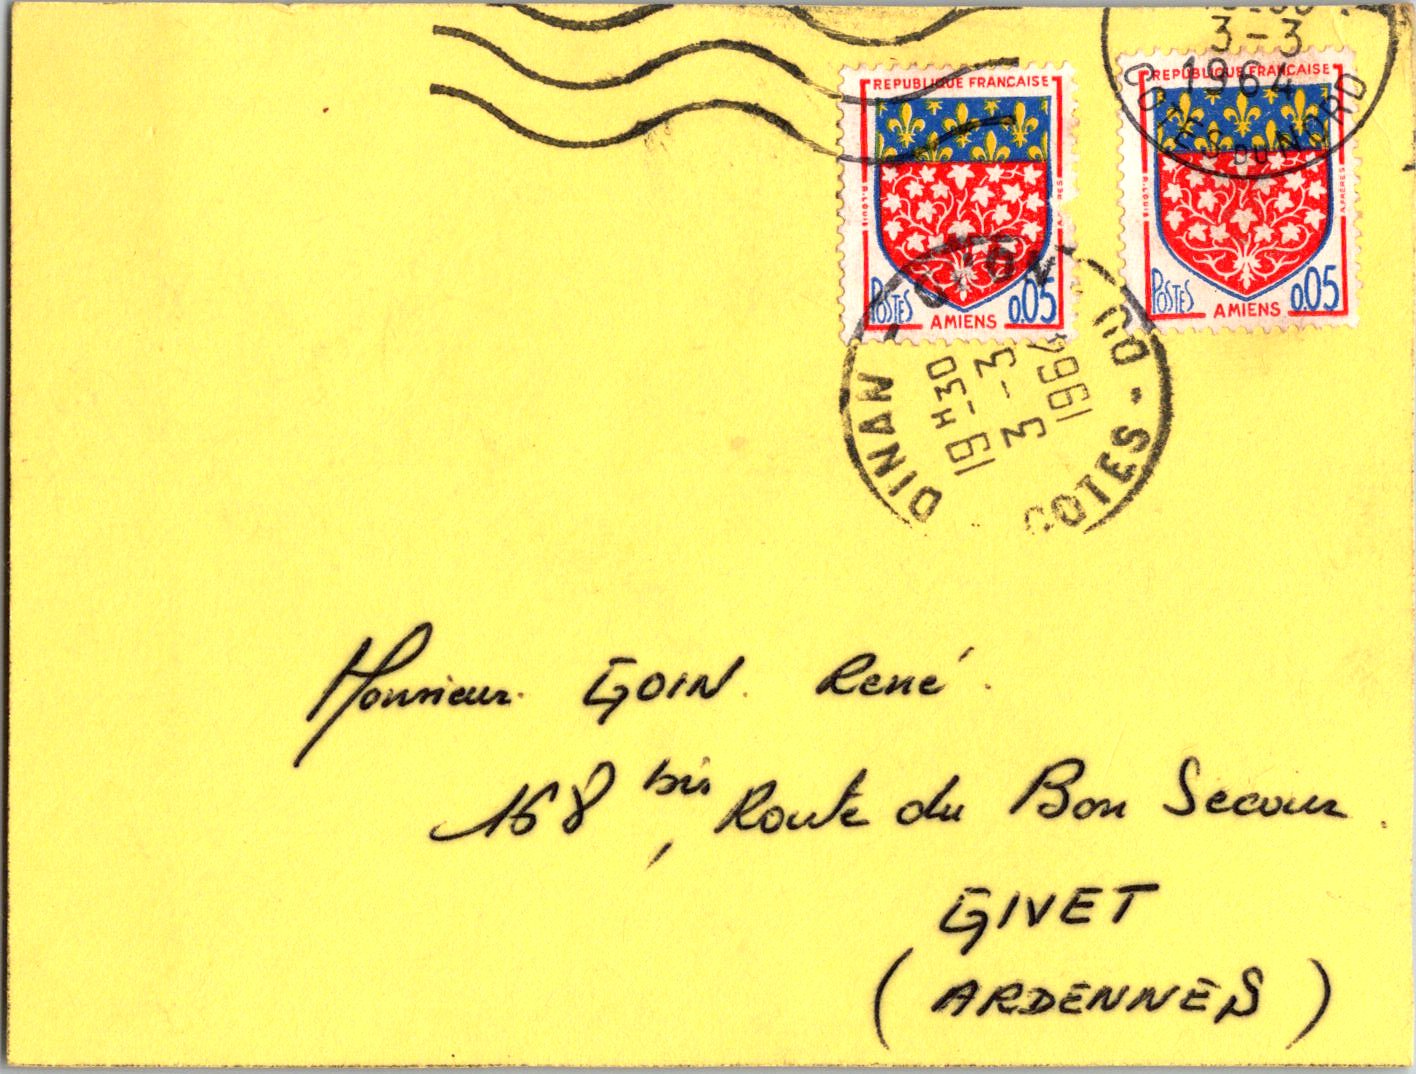 3-3
1964
COTES DU NORD
REPUBLIQUE FRANÇAISE
A.LOUIS
POSTES
0,05
AMIENS
REPUBLIQUE FRANÇAISE
A.FRÈRES
POSTES
0,05
AMIENS
DINAN
19H30
3-3
1964
COTES-DU-
Monsieur GOIN René
168 bis, Route du Bon Secours
GIVET
(ARDENNES)